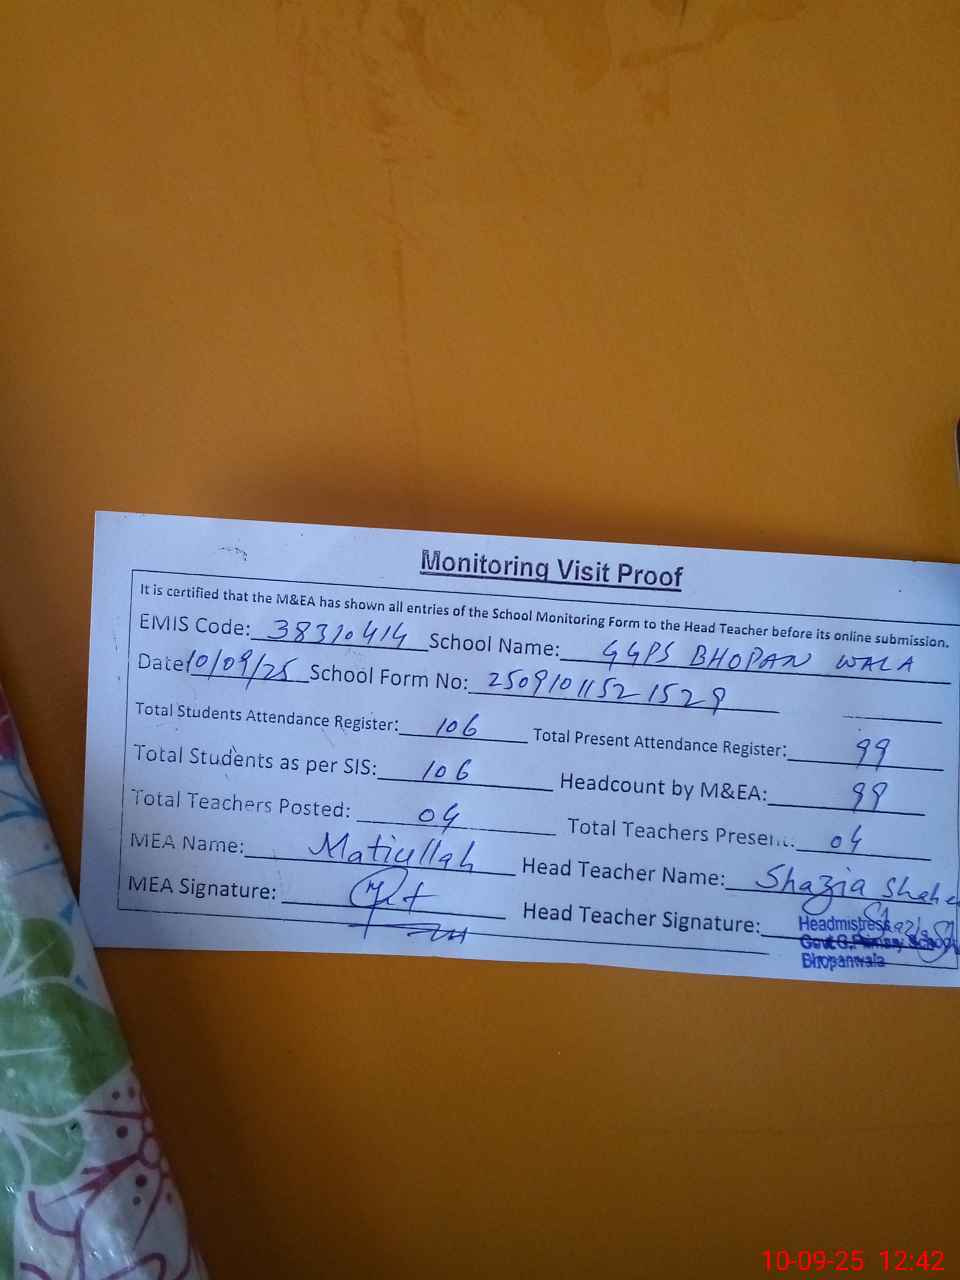 Monitoring Visit Proof
It is certified that the M&EA has shown all entries of the School Monitoring Form to the Head Teacher before its online submission.
EMIS Code: 38310414 School Name: GGPS BHOPAN WALA
Date: 10/09/25 School Form No: 2509101152 1529
Total Students Attendance Register: 106 Total Present Attendance Register: 99
Total Students as per SIS: 106 Headcount by M&EA: 99
Total Teachers Posted: 04 Total Teachers Present: 04
MEA Name: Matiullah Head Teacher Name: Shazia
MEA Signature: Head Teacher Signature:
Headmistress
Govt G.Primary School
Bhopanwala
10-09-25 12:42